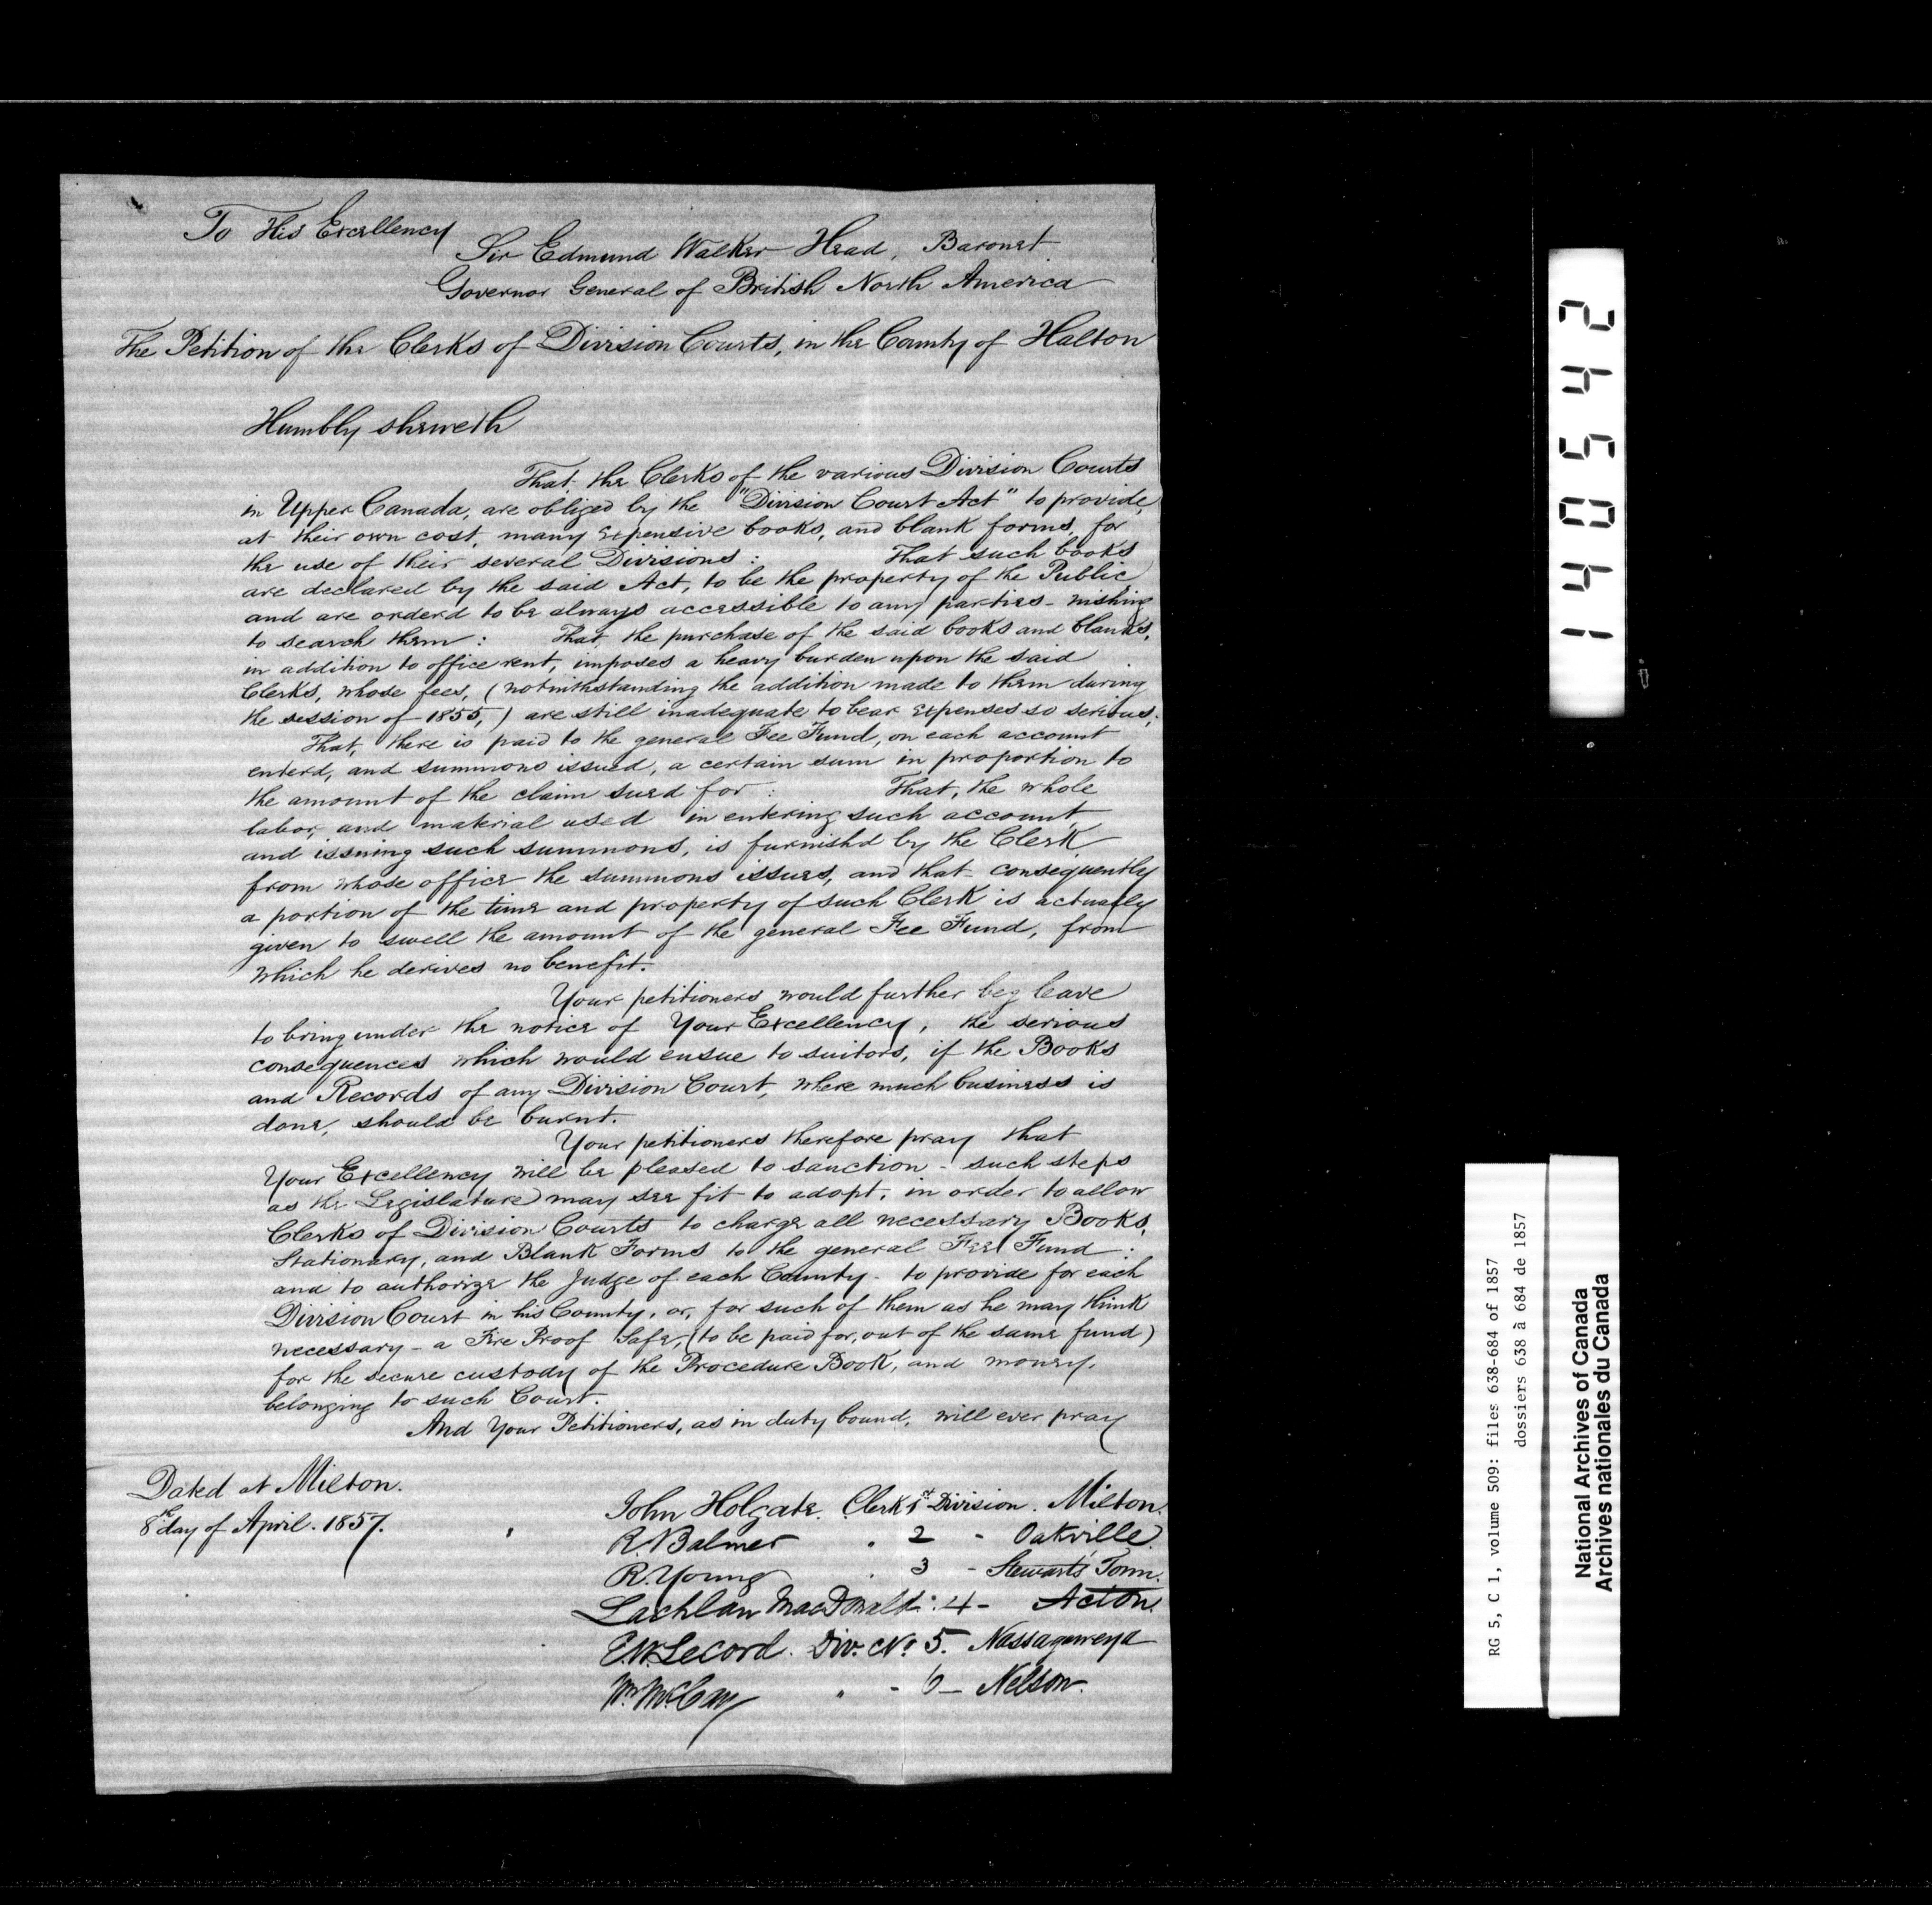 To His Excellency
Sir Edmund Walker Head, Baronet
Governor General of British North America
The Petition of the Clerks of Division Courts, in the County of Halton
Humbly sheweth
That, the Clerks of the various Division Courts
in Upper Canada, are obliged by the "Division Court Act" to provide,
at their own cost, many expensive books, and blank forms, for
the use of their several Divisions : That such books
are declared by the said Act, to be the property of the Public,
and are orderd to be always accessible to any parties - wishing
to search them : That, the purchase of the said books and blanks,
in addition to office rent, imposes a heavy burden upon the said
Clerks, whose fees, (notwithstanding the addition made to them during
the session of 1855,) are still inadequate to bear expenses so serious;
That, there is paid to the general Fee Fund, on each account
enterd, and summons issued, a certain sum in proportion to
the amount of the claim sued for : That, the whole
labor, and material used in entering such account,
and issuing such summons, is furnish'd by the Clerk
from whose office the summons issues, and that - consequently
a portion of the time and property of such Clerk is actually
given to swell the amount of the general Fee Fund, from
which he derives no benefit.
Your petitioners would further beg leave
to bring under the notice of Your Excellency, the serious
consequences which would ensue to suitors, if the Books
and Records of any Division Court, where much business is
done, should be burnt.
Your petitioners therefore pray that
Your Excellency will be pleased to sanction - such steps
as the Legislature may see fit to adopt, in order to allow
Clerks of Division Courts to charge all necessary Books,
Stationary, and Blank Forms to the general Fee Fund :
and to authorize the Judge of each County - to provide for each
Division Court in his County, or, for such of them as he may think
necessary - a Fire Proof Safe, (to be paid for, out of the same fund)
for the secure custody of the Procedure Book, and money,
belonging to such Court.
And Your Petitioners, as in duty bound, will ever pray
Dated at Milton.
8th day of April. 1857.
John Holgate. Clerk 1st Division. Milton.
R. Balmer " 2 - Oakville.
R. Young " 3 - Stewarts Town.
Lachlan MacDonald " 4 - Acton.
Lecord. Div. No 5. Nassagaweya
Wm McCay " - 6 - Nelson.
140542
RG 5, C 1, volume 509: files 638-684 of 1857
dossiers 638 à 684 de 1857
National Archives of Canada
Archives nationales du Canada